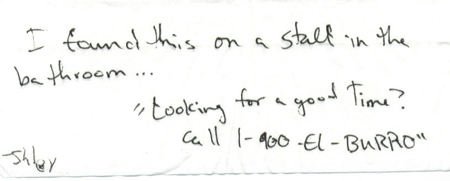 I found this on a stall in the
bathroom...
"Looking for a good Time?
Call 1-900-El-BURRO"